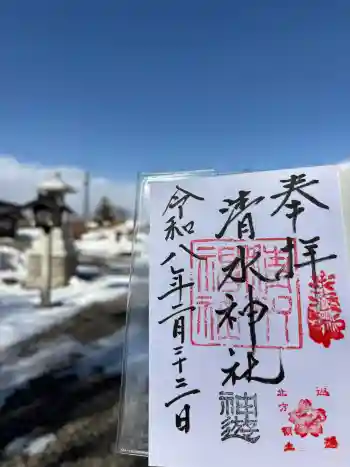 奉拝
清水神社
令和八年一月二十三日
清水神社
神遊